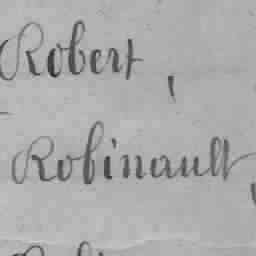 Robert,
Robinault,